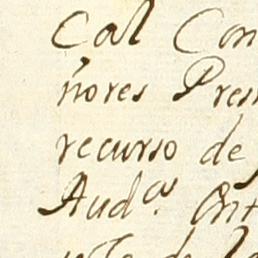 Cal Con
ñores Pres
recurso de
Aud.as Ont